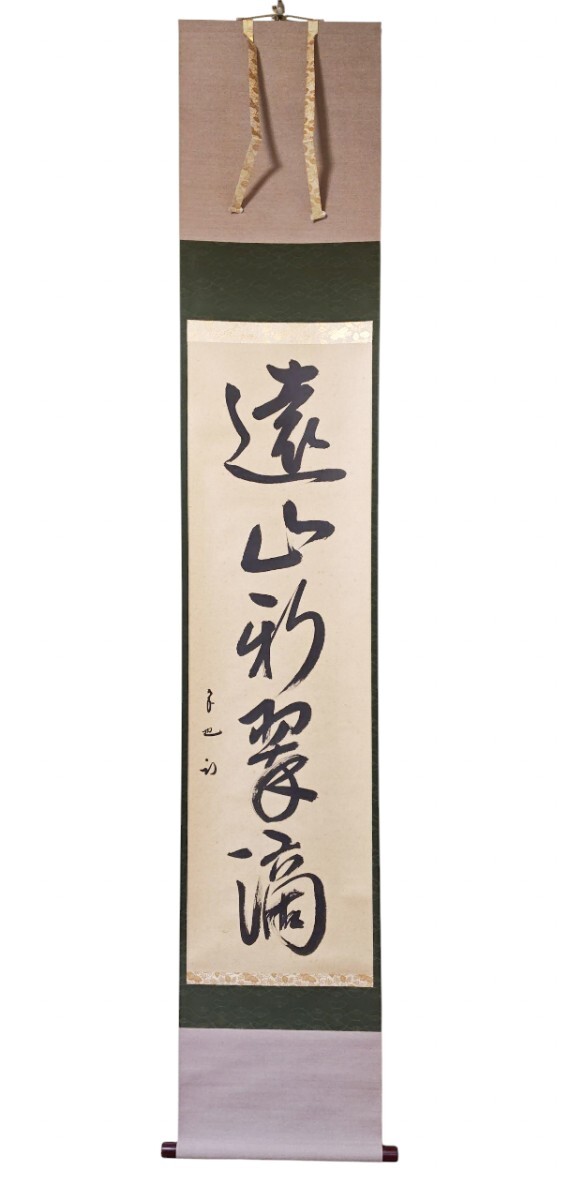 遠山新翠滴